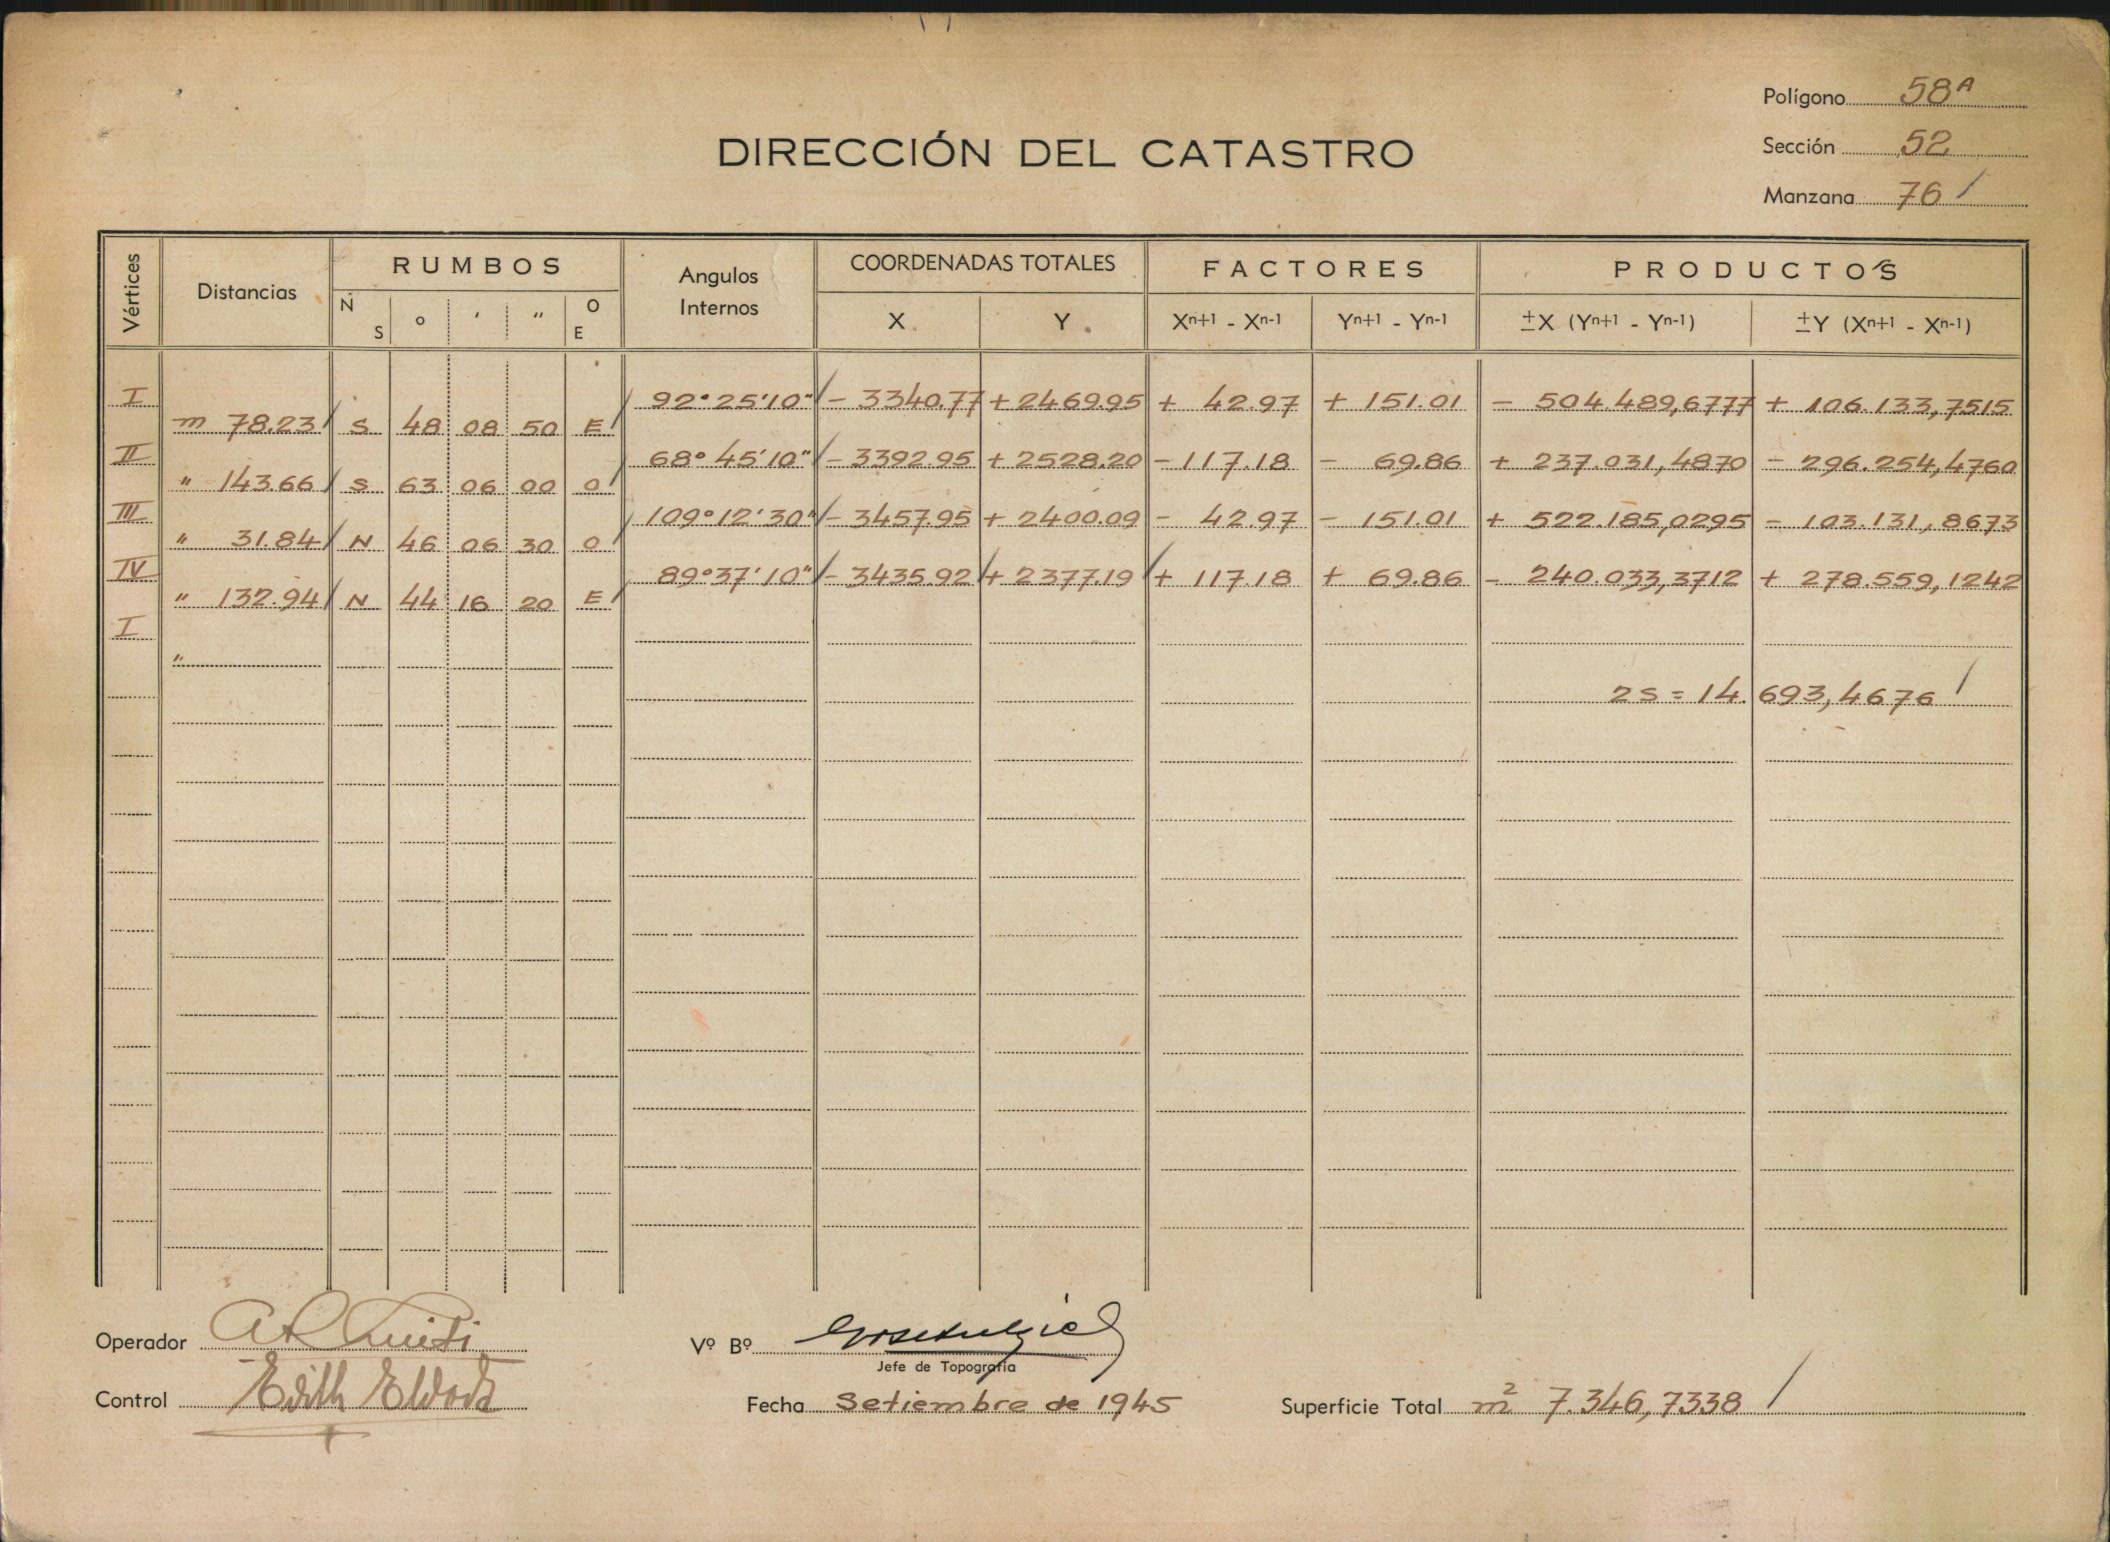 Polígono 58A
DIRECCIÓN DEL CATASTRO
Sección 52
Manzana 76
Vértices Distancias RUMBOS Angulos Internos COORDENADAS TOTALES FACTORES PRODUCTOS
N S o ' " O E X Y Xn+1 - Xn-1 Yn+1 - Yn-1 ±X (Yn+1 - Yn-1) ±Y (Xn+1 - Xn-1)
I 92°25'10" - 3340.77 + 2469.95 + 42.97 + 151.01 - 504.489,6777 + 106.133,7515
m 78.23 S 48 08 50 E
II 68°45'10" - 3392.95 + 2528.20 - 117.18 - 69.86 + 237.031,4870 - 296.254,4760
" 143.66 S 63 06 00 O
III 109°12'30" - 3457.95 + 2400.09 - 42.97 - 151.01 + 522.185,0295 - 103.131,8673
" 31.84 N 46 06 30 O
IV 89°37'10" - 3435.92 + 2377.19 + 117.18 + 69.86 - 240.033,3712 + 278.559,1242
" 132.94 N 44 16 20 E
I
"
2S = 14.693,4676
Operador
Vº Bº
Jefe de Topografía
Control Edith
Fecha Setiembre de 1945
Superficie Total m2 7.346,7338